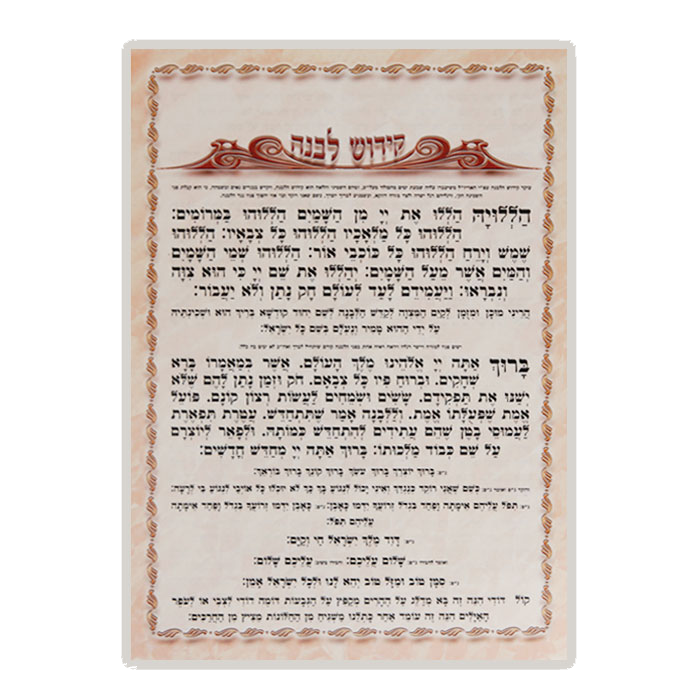 קידוש לבנה
הַלְלוּיָהּ הַלְלוּ אֶת יְיָ מִן הַשָּׁמַיִם הַלְלוּהוּ בַּמְּרוֹמִים:
הַלְלוּהוּ כָל מַלְאָכָיו הַלְלוּהוּ כָּל צְבָאָיו: הַלְלוּהוּ
שֶׁמֶשׁ וְיָרֵחַ הַלְלוּהוּ כָּל כּוֹכְבֵי אוֹר: הַלְלוּהוּ שְׁמֵי הַשָּׁמָיִם
וְהַמַּיִם אֲשֶׁר מֵעַל הַשָּׁמָיִם: יְהַלְלוּ אֶת שֵׁם יְיָ כִּי הוּא צִוָּה
וְנִבְרָאוּ: וַיַּעֲמִידֵם לָעַד לְעוֹלָם חָק נָתַן וְלֹא יַעֲבוֹר:
הֲרֵינִי מוּכָן וּמְזֻמָּן לְקַיֵּם הַמִּצְוָה לְקַדֵּשׁ הַלְּבָנָה לְשֵׁם יִחוּד קוּדְשָׁא בְּרִיךְ הוּא וּשְׁכִינְתֵּיהּ
עַל יְדֵי הַהוּא טָמִיר וְנֶעְלָם בְּשֵׁם כָּל יִשְׂרָאֵל:
בָּרוּךְ אַתָּה יְיָ אֱלֹהֵינוּ מֶלֶךְ הָעוֹלָם, אֲשֶׁר בְּמַאֲמָרוֹ בָּרָא
שְׁחָקִים, וּבְרוּחַ פִּיו כָּל צְבָאָם, חֹק וּזְמַן נָתַן לָהֶם שֶׁלֹּא
יְשַׁנּוּ אֶת תַּפְקִידָם, שָׂשִׂים וּשְׂמֵחִים לַעֲשׂוֹת רְצוֹן קוֹנָם, פּוֹעֵל
אֱמֶת שֶׁפְּעֻלָּתוֹ אֱמֶת, וְלַלְּבָנָה אָמַר שֶׁתִּתְחַדֵּשׁ, עֲטֶרֶת תִּפְאֶרֶת
לַעֲמוּסֵי בָטֶן שֶׁהֵם עֲתִידִים לְהִתְחַדֵּשׁ כְּמוֹתָהּ, וּלְפָאֵר לְיוֹצְרָם
עַל שֵׁם כְּבוֹד מַלְכוּתוֹ: בָּרוּךְ אַתָּה יְיָ מְחַדֵּשׁ חֳדָשִׁים:
ג"פ: בָּרוּךְ יוֹצְרֵךְ בָּרוּךְ עוֹשֵׂךְ בָּרוּךְ קוֹנֵךְ בָּרוּךְ בּוֹרְאֵךְ:
כְּשֵׁם שֶׁאֲנִי רוֹקֵד כְּנֶגְדֵּךְ וְאֵינִי יָכוֹל לִנְגּוֹעַ בָּךְ כָּךְ לֹא יוּכְלוּ כָּל אוֹיְבַי לִנְגּוֹעַ בִּי לְרָעָה:
ג"פ: תִּפֹּל עֲלֵיהֶם אֵימָתָה וָפַחַד בִּגְדֹל זְרוֹעֲךָ יִדְּמוּ כָּאָבֶן: ג"פ: כָּאָבֶן יִדְּמוּ זְרוֹעֲךָ בִּגְדֹל וָפַחַד אֵימָתָה
עֲלֵיהֶם תִּפֹּל:
ג"פ: דָּוִד מֶלֶךְ יִשְׂרָאֵל חַי וְקַיָּם:
ג"פ: שָׁלוֹם עֲלֵיכֶם: עֲלֵיכֶם שָׁלוֹם:
ג"פ: סִמָּן טוֹב וּמַזָּל טוֹב יְהֵא לָנוּ וּלְכָל יִשְׂרָאֵל אָמֵן:
קוֹל דּוֹדִי הִנֵּה זֶה בָּא מְדַלֵּג עַל הֶהָרִים מְקַפֵּץ עַל הַגְּבָעוֹת דּוֹמֶה דוֹדִי לִצְבִי אוֹ לְעֹפֶר
הָאַיָּלִים הִנֵּה זֶה עוֹמֵד אַחַר כָּתְלֵנוּ מַשְׁגִּיחַ מִן הַחַלּוֹנוֹת מֵצִיץ מִן הַחֲרַכִּים: